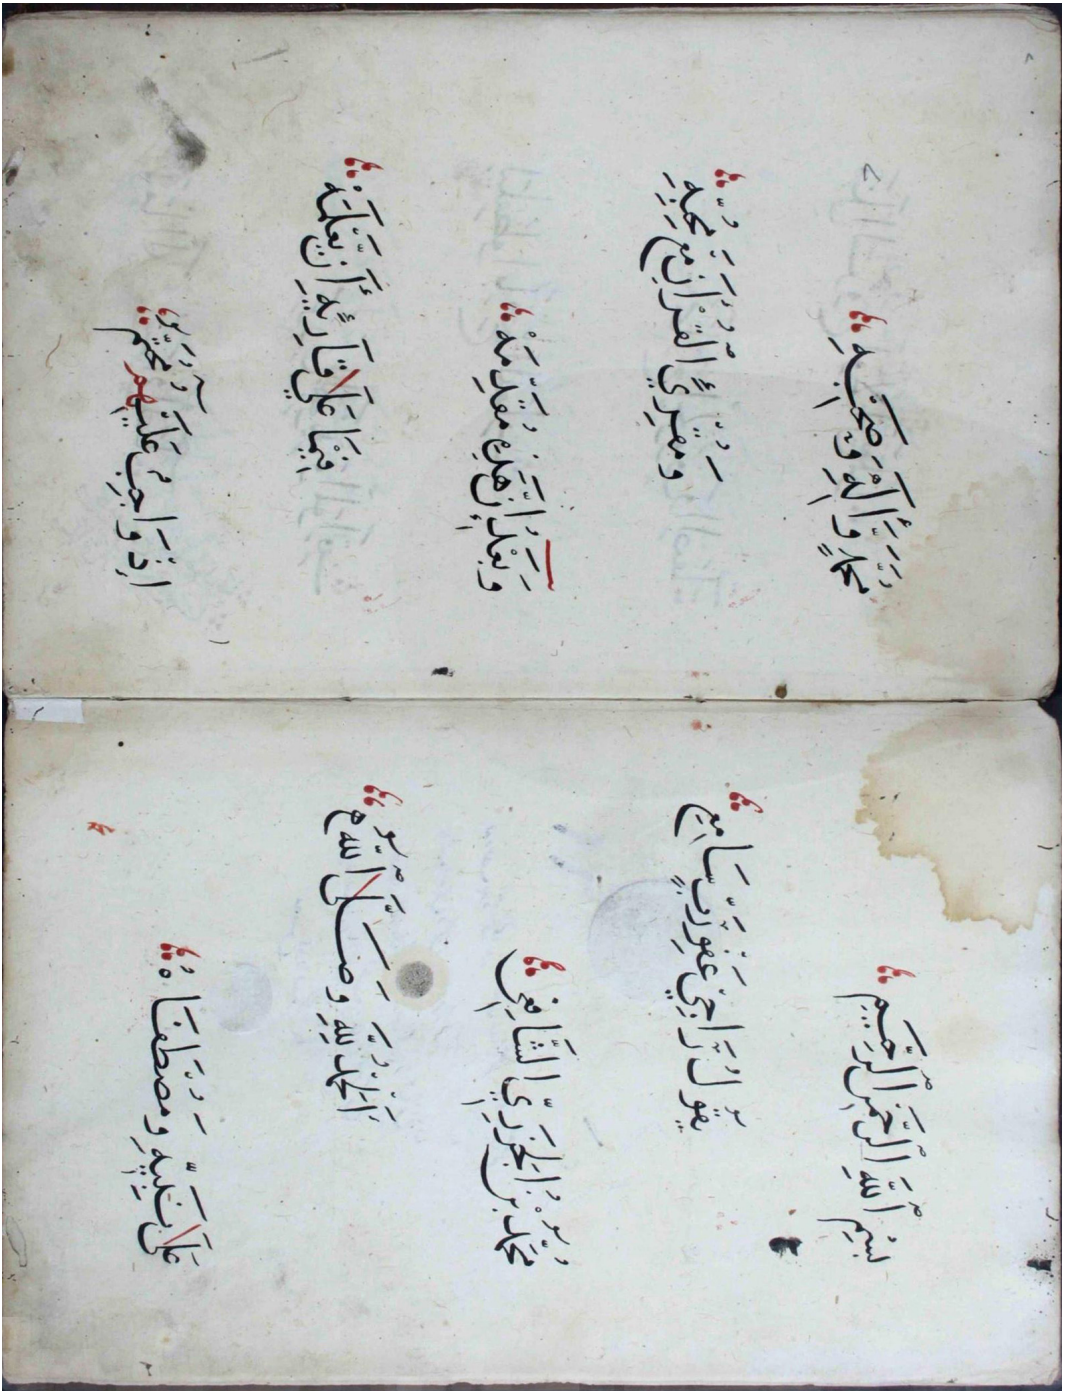 بِسْمِ ٱللَّهِ ٱلرَّحْمَٰنِ ٱلرَّحِيمِ
يَقُولُ رَاجِيْ عَفْوِ رَبٍّ سَامِعِ
مُحَمَّدُ بْنُ الْجَزَرِيِّ الشَّافِعِي
اَلْحَمْدُ لِلّٰهِ وَصَلَّى اللّٰهُ
عَلَى نَبِيِّهِ وَمُصْطَفَاهُ
مُحَمَّدٍ وَّأٰلِهِ وَصَحْبِهِ
وَمُقْرِيءِ الْقُرْأٰنِ مَعْ مُحِبِّهِ
وَبَعْدُ إِنَّ هٰذِهِ مُقَدِّمَهْ
فِيْمَا عَلَى قَارِئِهِ أَنْ يَّعْلَمَهْ
إِذْ وَاجِبٌ عَلَيْهِمُ مُحَتَّمُ